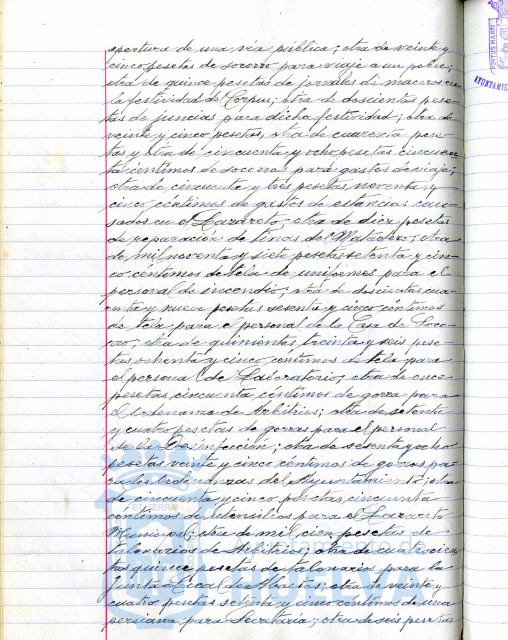 apertura de una vía pública; otra de veinte y
cinco pesetas de socorro para viaje a un pobre;
otra de quince pesetas de jornales de maceros en
la festividad del Corpus; otra de doscientas pese-
tas de juncias para dicha festividad; otra de
veinte y cinco pesetas, otra de cuarenta pese-
tas y otra de cincuenta y ocho pesetas cincuen-
ta centimos de socorros para gastos de viaje;
otra de cincuenta y tres pesetas noventa y
cinco céntimos de gastos de estancias cau-
sados en el Lazareto; otra de diez pesetas
de reparación de tinas del Matadero; otra
de mil noventa y siete pesetas setenta y cin-
co céntimos de tela de uniformes para el
personal de incendio; otra de doscientas cua-
renta y nueve pesetas sesenta y cinco céntimos
de tela para el personal de la Casa de Soco-
rro; otra de quinientas treinta y seis pese-
tas ochenta y cinco centimos de tela para
el personal de Laboratorio; otra de once
pesetas cincuenta céntimos de gorra para
el Ordenanza de Arbitrios; otra de setenta
y cuatro pesetas de gorras para el personal
de la Desinfección; otra de sesenta y ocho
pesetas veinte y cinco céntimos de gorras pa-
ra los Ordenanzas del Ayuntamiento; otra
de cincuenta y cinco pesetas cincuenta
centimos de utensilios para el Lazareto
Municipal; otra de mil cien pesetas de
talonarios de Arbitrios; otra de cuatrocien-
tas quince pesetas de talonarios para la
Junta Local de
otra de veinte y
cuatro pesetas setenta y cinco céntimos de una
persiana para Secretaría; otra de seis pesetas
PORTUS MARIS
AYUNTAMIE
HUELVA